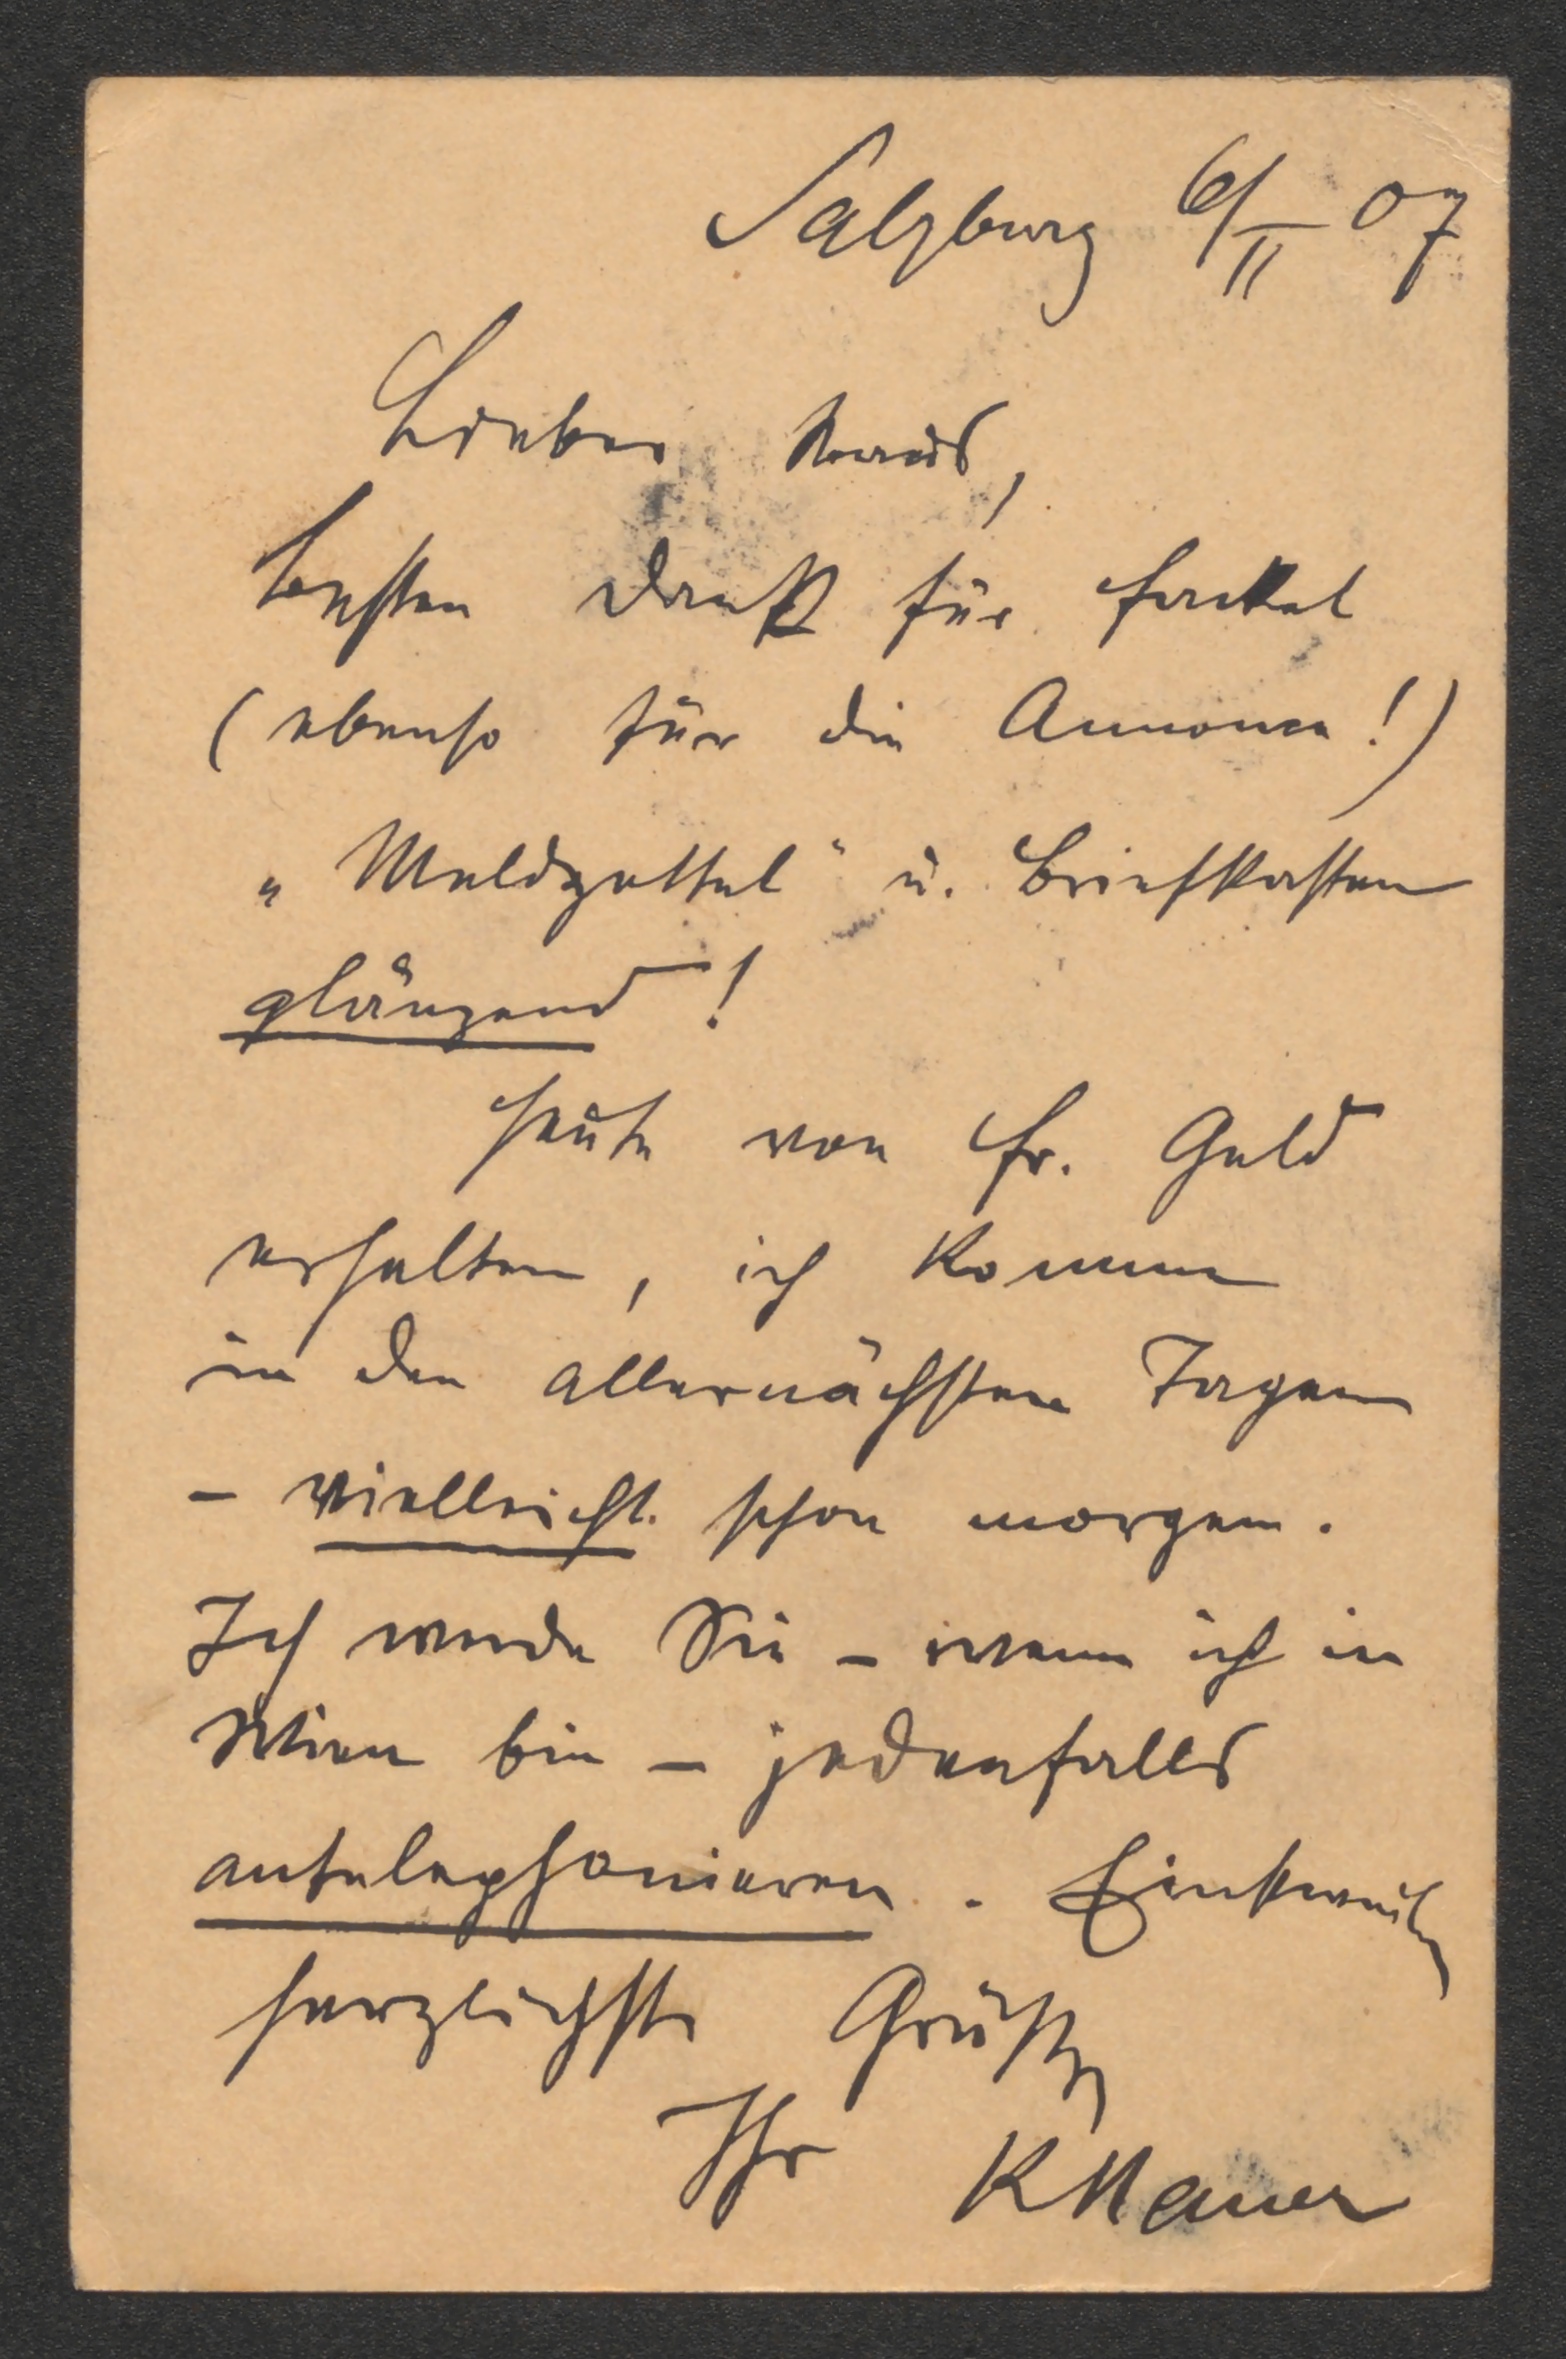 Salzburg 6/II 07
Lieber Kraus,
besten Dank für Fackel
(ebenso für die Annonce!)
„Meldzettel" u. Briefkasten
glänzend!
Heute von Fr. Geld
erhalten, ich komme
in den allernächsten Tagen
– vielleicht schon morgen.
Ich werde Sie – wenn ich in
Wien bin – jedenfalls
antelephonieren. Einstweilen
herzlichste Grüße
Ihr KHauer